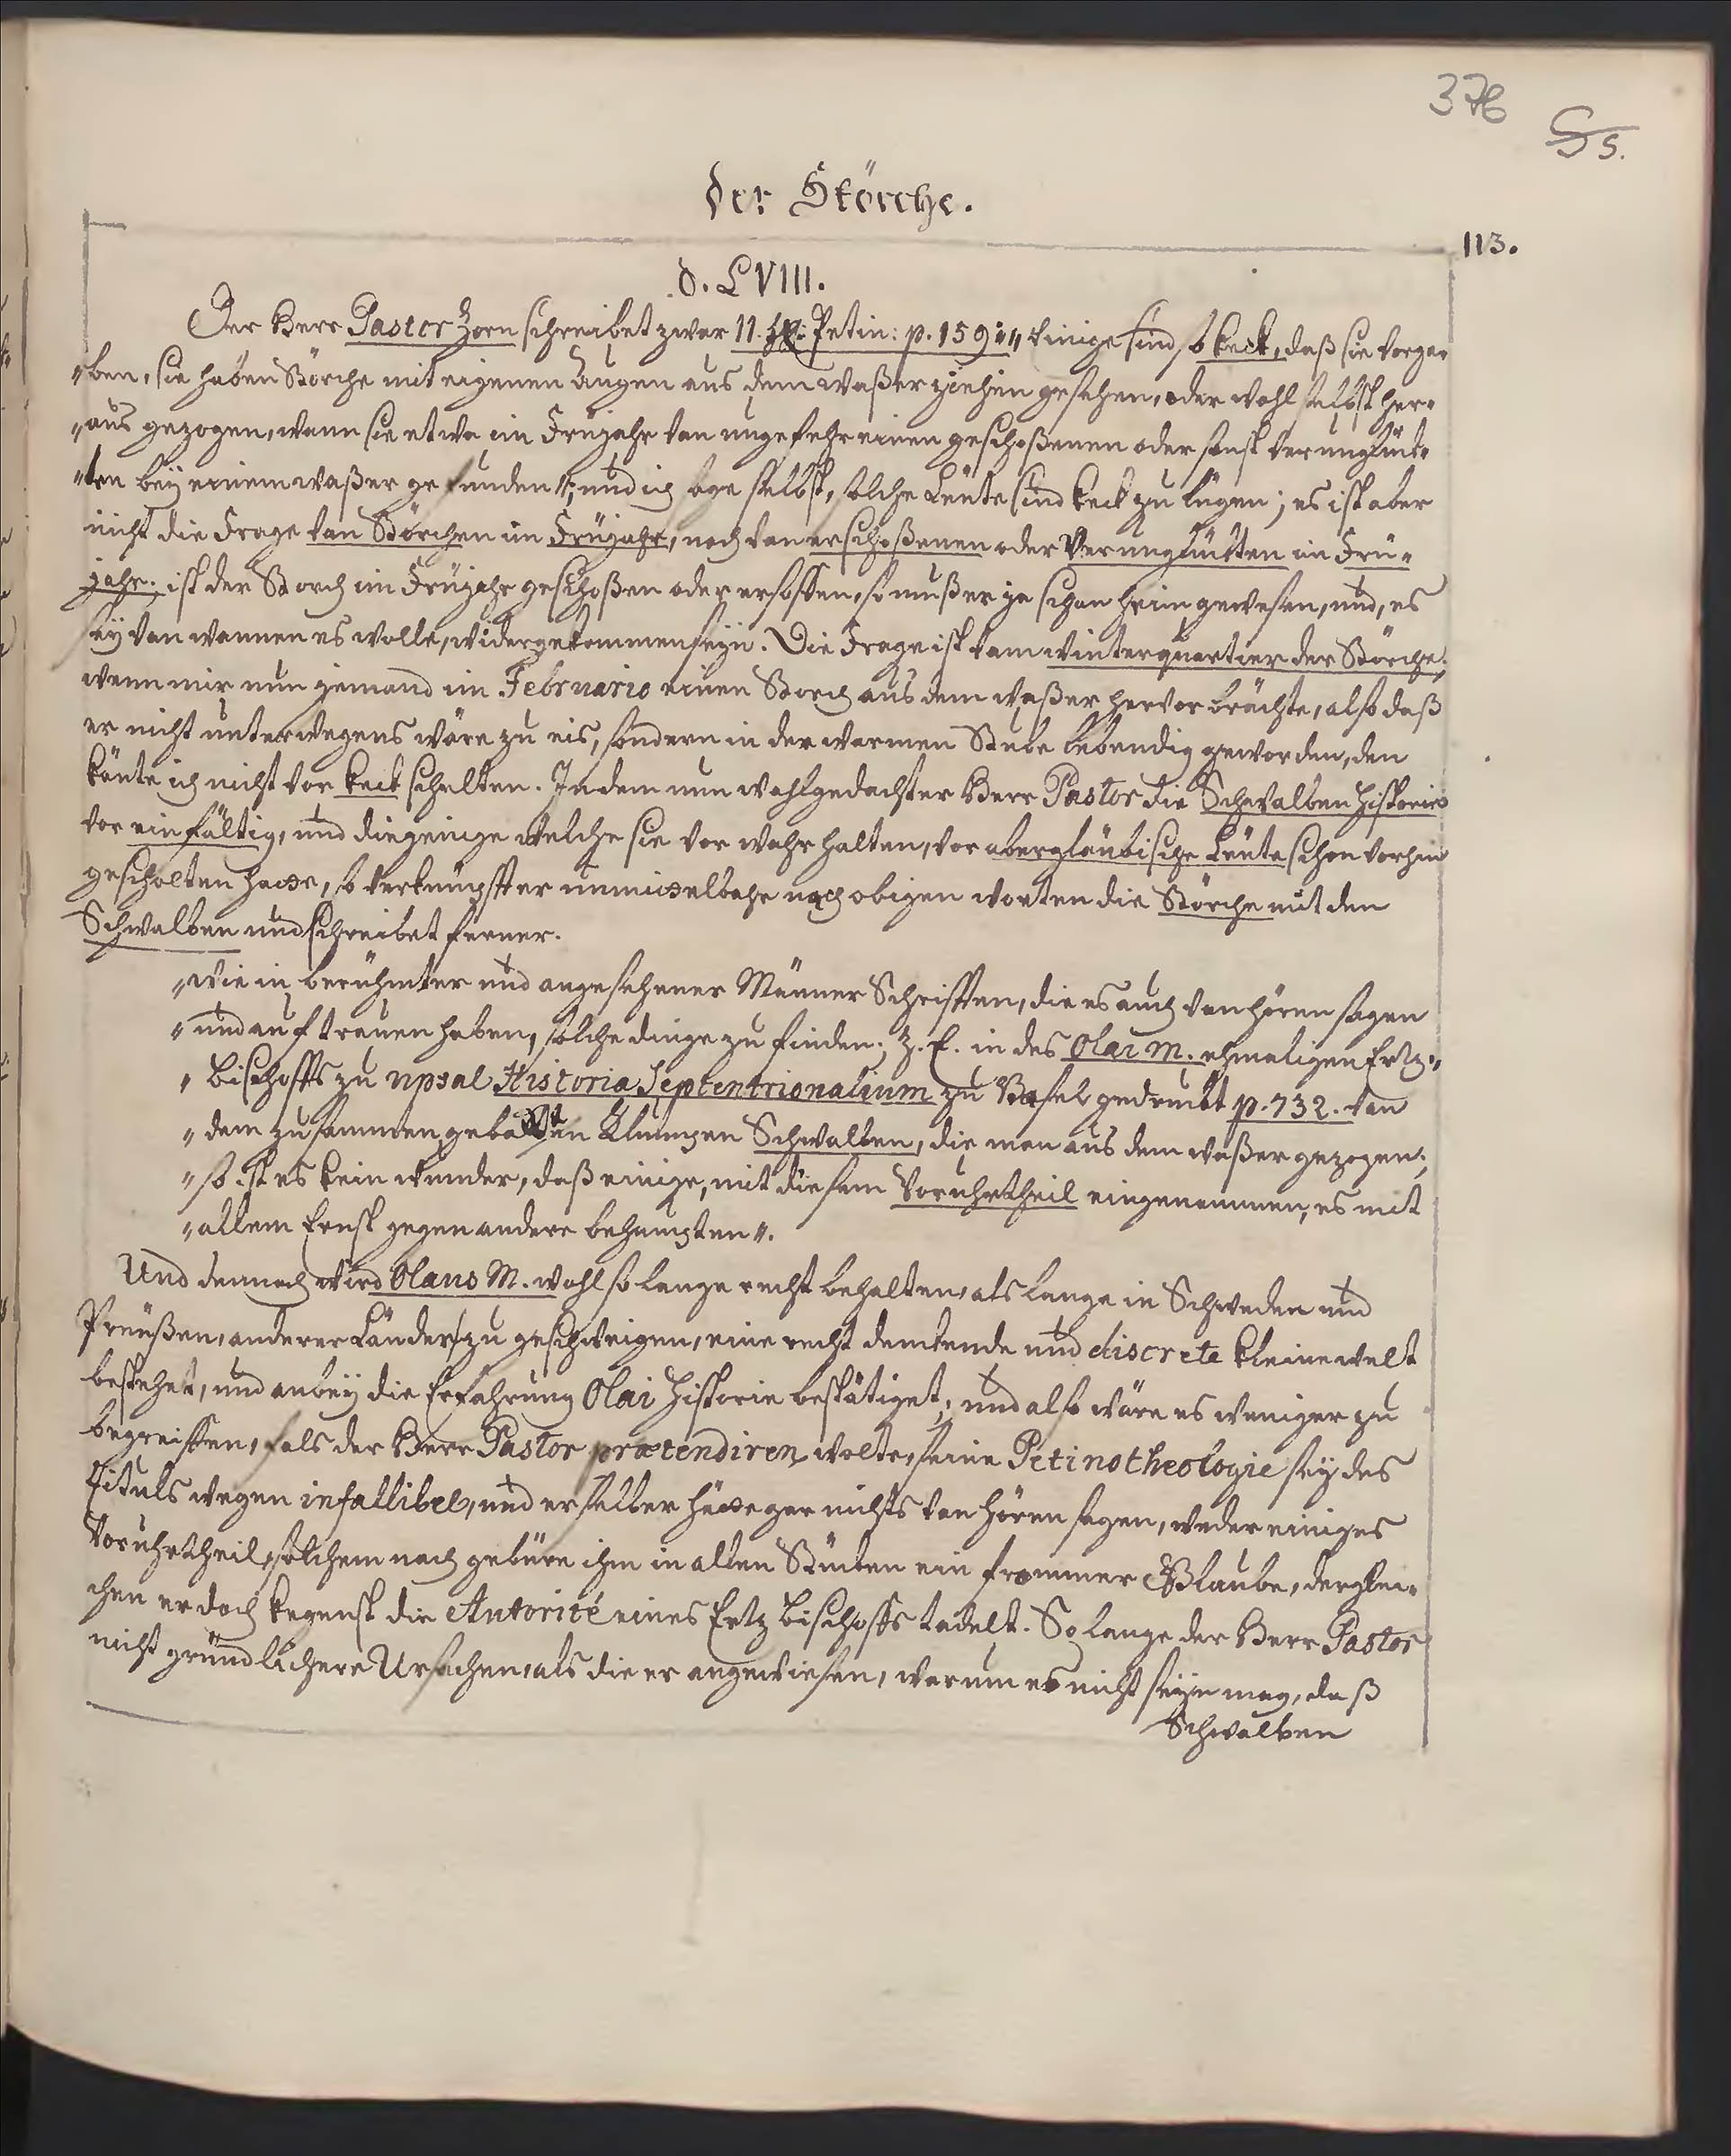 376
55.
der Störche.
113.
§. LVIII.
Der Herr Pastor Zorn schreibet zwar 11. Petin: p. 159: „Einige sind so keck, daß sie vorge„
„ben, sie haben Störche mit eigenen Augen aus dem Waßer ziehen gesehen, oder wohl selbst her„
„aus gezogen, wann sie etwa im Früjahr von ungefehr einen geschoßenen oder sonst verunglük„
„ten bey einem Waßer gefunden„; und ich sage selbst, solche Leüte sind keck zu lügen; es ist aber
nicht die Frage von Störchen im Früjahr, noch von erschoßenen oder Verunglükten im Frü„
jahr; ist der Storch im Früjahr geschoßen oder ersoffen, so muß er ja schon heim gewesen, und, es
sey von wannen es wolle, widergekommen seyn. Die Frage ist vom Winterquartier der Störche;
wenn mir nun jemand im Februario einen Storch aus dem Waßer hervor brächte, also daß
er nicht unterwegens wäre zu eis, sondern in der warmen Stube lebendig geworden, den
könte ich nicht vor keck schelten. Indem nun wohlgedachter Herr Pastor die Schwalben Historie
vor einfältig, und diejenige welche sie vor wahr halten, vor abergläubische Leüte schon vorhin
gescholten hatte, so verknüpft er unmittelbahr nach obigen worten die Störche mit den
Schwalben und schreibet ferner.
„Wie in berühmter und angesehener Männer Schrifften, die es auch von hören sagen
„und auf trauen haben, solche dinge zu finden; Z. E. in des Olai M. ehmaligen Ertz„
„Bischoffs zu Upsal Historia Septentrionalium zu Basel gedruckt p. 732. von
„dem zusammen geballten Klumpen Schwalben, die man aus dem Waßer gezogen;
„so ist es kein wunder, daß einige, mit diesem Voruhrtheil eingenommen, es mit
„allem Ernst gegen andere behaupten„.
Und dennoch wird Olaus M. wohl so lange recht behalten, als lange in Schweden und
Preüßen, anderer Länder zu geschweigen, eine recht denkende und discrete kleine welt
bestehet, und anbey die Erfahrung Olai Historie bestätiget; und also wäre es weniger zu
begreiffen, fals der Herr Pastor prætendiren wolte, seine Petinotheologie sey des
Tituls wegen infallibel, und er selber hätte gar nichts von hören sagen, weder einiges
Voruhrtheil, solchem nach gebüre ihm in allen Stücken ein frommer Glaube, derglei„
chen er doch kegenst die Autorité eines Ertz Bischoffs tadelt. So lange der Herr Pastor
nicht gründlichere Ursachen, als die er angewiesen, warum es nicht seyn mag, daß
Schwalben